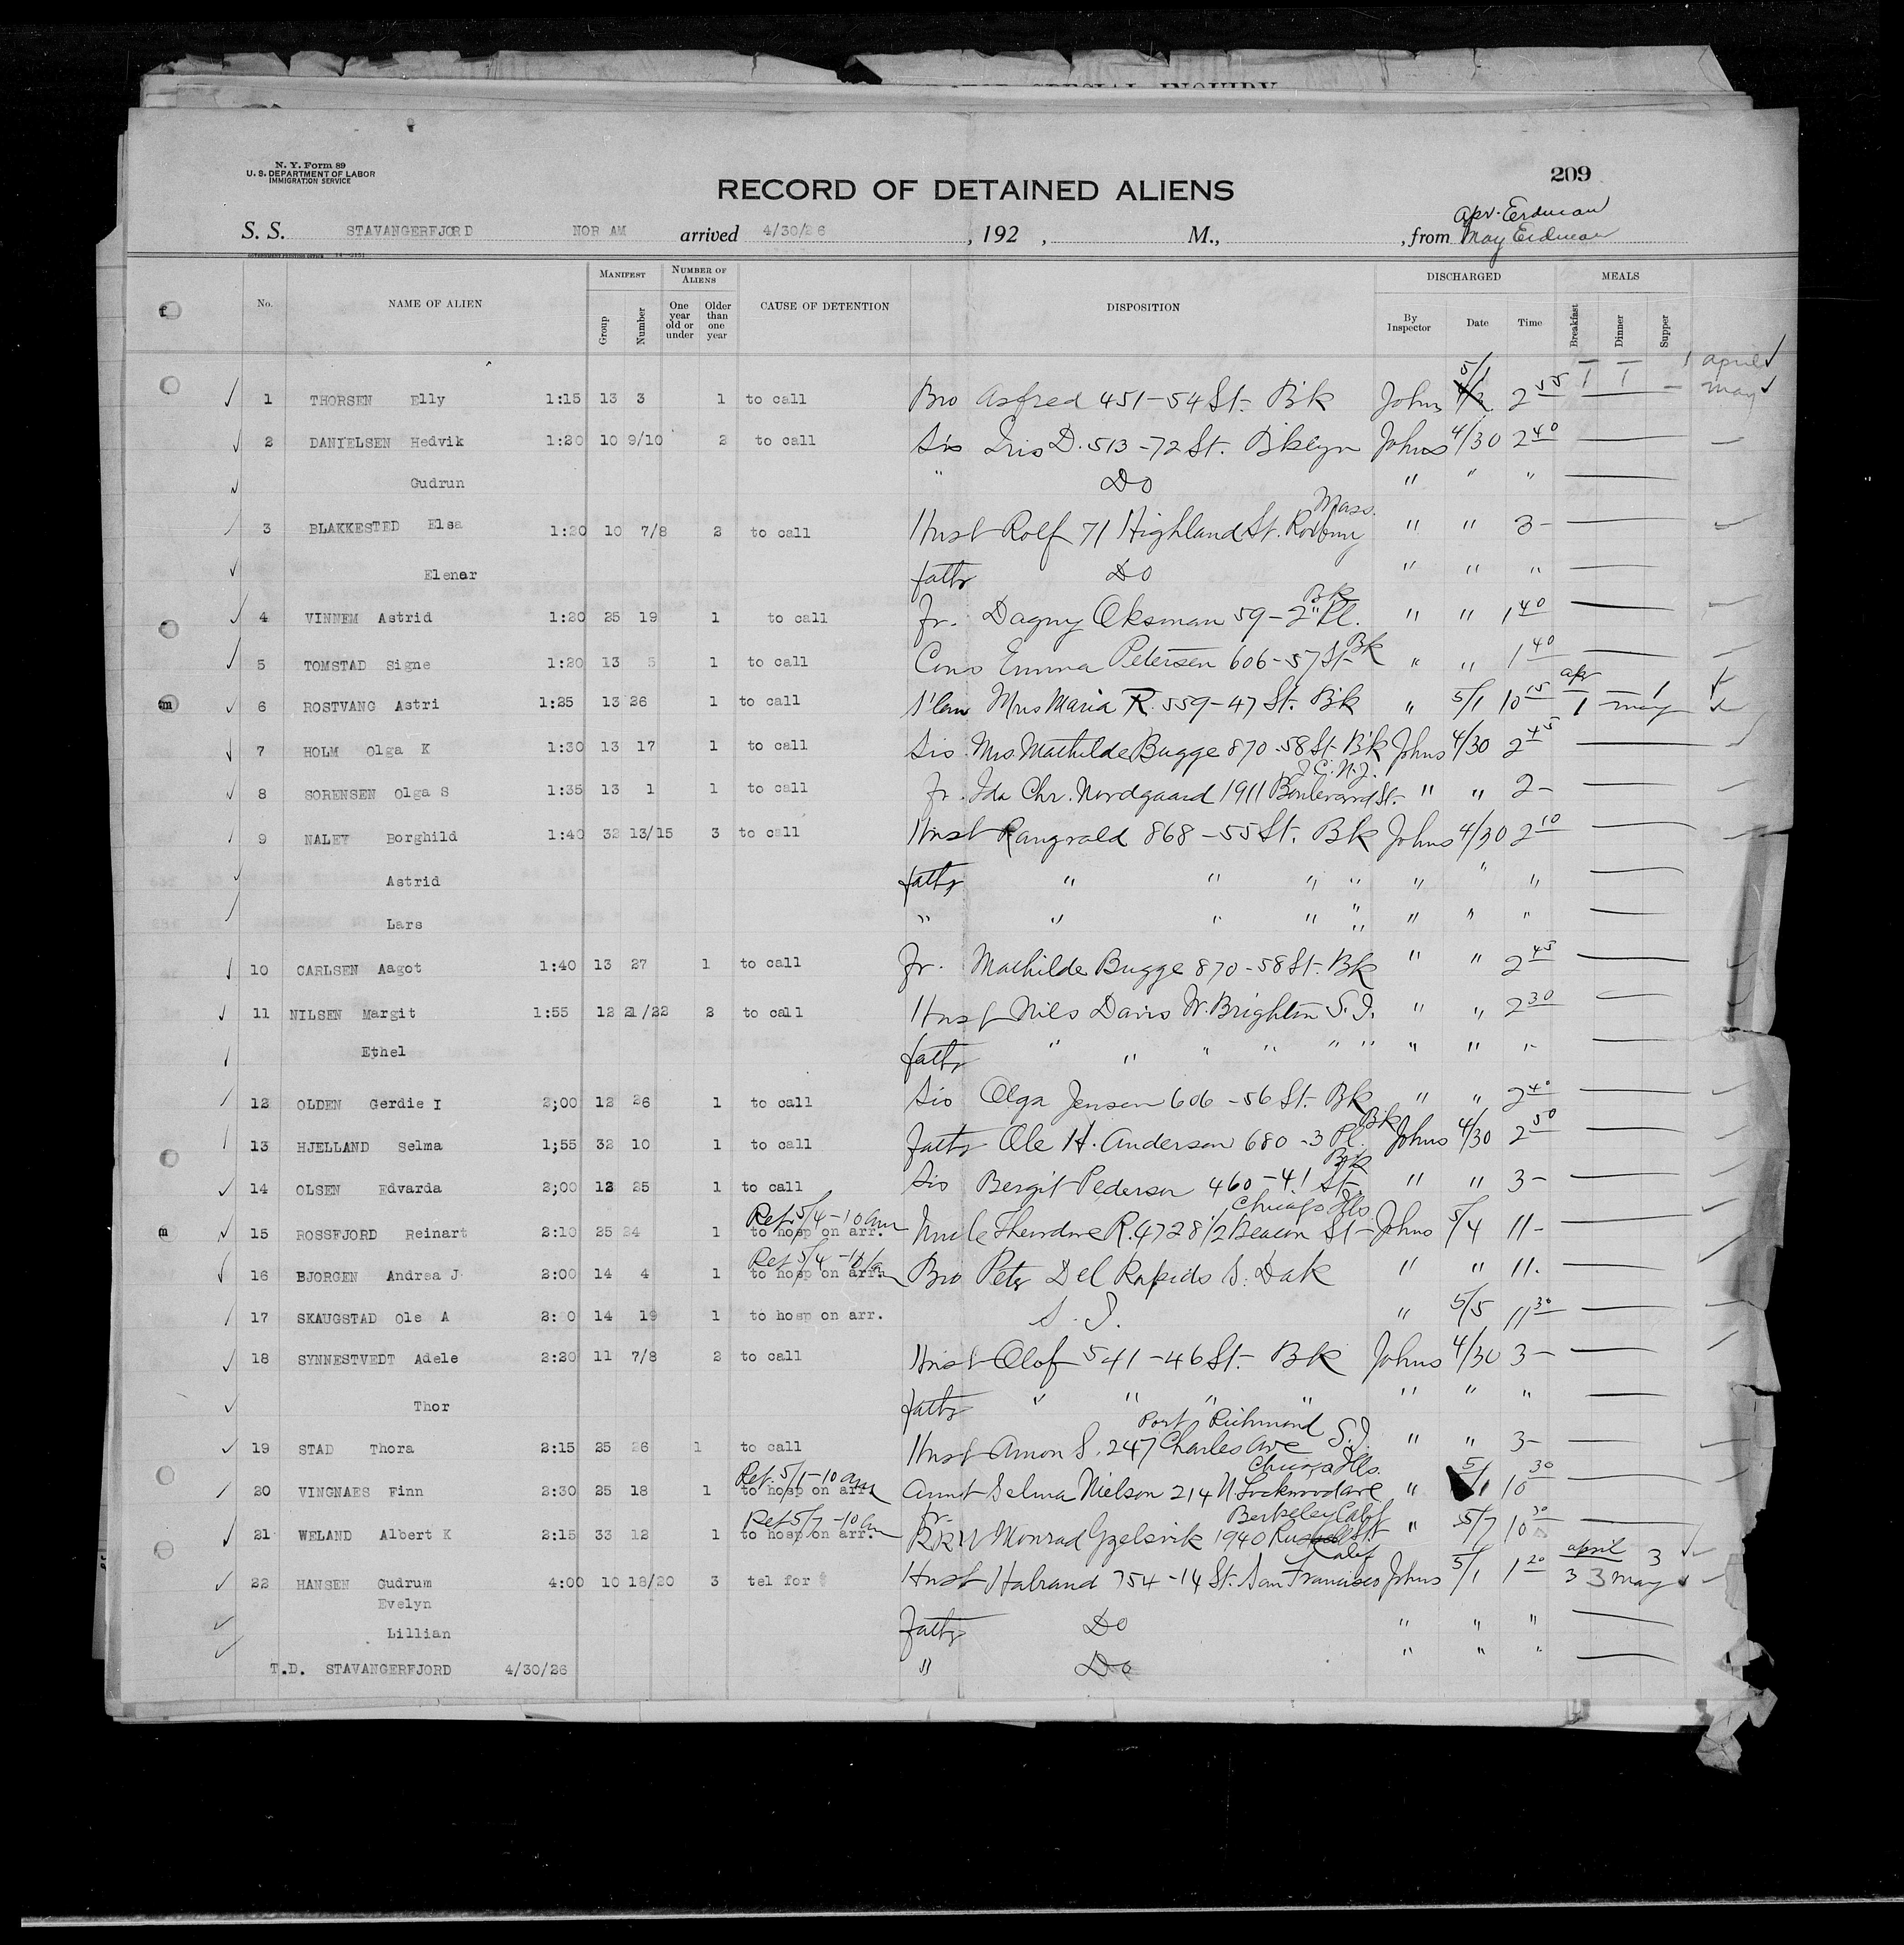 N. Y. Form 89
U. S. DEPARTMENT OF LABOR
IMMIGRATION SERVICE
209
RECORD OF DETAINED ALIENS
Apr. Erdman
S. S. STAVANGERFJORD NOR AM arrived 4/30/26 , 192 , M., , from May Erdman
No. NAME OF ALIEN MANIFEST Group Number NUMBER OF ALIENS One year old or under Older than one year CAUSE OF DETENTION DISPOSITION DISCHARGED By Inspector Date Time MEALS Breakfast Dinner Supper
5/1 — — 1 april ✓
1 THORSEN Elly 1:15 13 3 1 to call Bro Asfred 451-54 St. Bk Johns 2 55 1 1 — may ✓
2 DANIELSEN Hedvik 1:20 10 9/10 2 to call Sis Iris D. 513-72 St. Bklyn Johns 4/30 2 40
Gudrun " Do " " "
Mass.
3 BLAKKESTED Elsa 1:20 10 7/8 2 to call Husb Rolf 71 Highland St. " " 3-
Elenor fathr Do " " "
Bk
4 VINNEM Astrid 1:20 25 19 1 to call fr. Dagny Oksman 59-2" Pl. " " 1 40
5 TOMSTAD Signe 1:20 13 5 1 to call Cous Emma Petersen 606-57 St Bk " " 1 40
apr
6 ROSTVANG Astri 1:25 13 26 1 to call Mrs Maria R. 559-47 St. Bk " 5/1 10 15 1 — may
7 HOLM Olga K 1:30 13 17 1 to call Sis. Mrs. Mathilde Bugge 870-58 St. Bk Johns 4/30 2 45
J.C. N.J.
8 SORENSEN Olga S 1:35 13 1 1 to call fr. Ida Chr. Nordgaard 1911 Boulevard St. " " 2-
9 NALEY Borghild 1:40 32 13/15 3 to call Husb Rangvald 868-55 St. Bk Johns 4/30 2 10
Astrid fathr " " " " " " "
Lars " " " " " " " "
10 CARLSEN Aagot 1:40 13 27 1 to call Fr. Mathilde Bugge 870-58 St. Bk " " 2 45
11 NILSEN Margit 1:55 12 21/22 2 to call Husb Nils Davis W. Brighton S.I. " " 2 30
Ethel fathr " " " " " " " " "
12 OLDEN Gerdie I 2;00 12 26 1 to call Sis Olga Jensen 606-56 St. Bk " " 2 40
13 HJELLAND Selma 1;55 32 10 1 to call fathr Ole H. Anderson 680-3 Pl. Bk Johns 4/30 2 50
Bk
14 OLSEN Edvarda 2;00 12 25 1 to call Sis Bergit Pederson 460-41 St. " " 3-
Ret. 5/4-10 am Chicago Ills
15 ROSSFJORD Reinart 2:10 25 24 1 to hosp on arr. Uncle Theodore R. 4728 1/2 Beacon St Johns 5/4 11-
Ret 5/4
16 BJORGEN Andrea J 2:00 14 4 1 to hosp on arr. Bro Petr Del Rapids S. Dak " " 11.
17 SKAUGSTAD Ole A 2: 0 14 19 1 to hosp on arr. S.I. " 5/5 11 30
18 SYNNESTVEDT Adele 2:20 11 7/8 2 to call Husb Olof 541-46 St. Bk Johns 4/30 3-
Thor fathr " " " " " " "
Port Richmond
19 STAD Thora 2:15 25 26 1 to call Husb Amon S. 247 Charles Ave S.I. " " 3-
Ret. 5/1-10 am Chicago Ills.
20 VINGNAES Finn 2:30 25 18 1 to hosp on arr. Aunt Selma Nielson 214 N Lockwood ave " 5/1 10 30
Ret 5/7-10 am fr. Berkeley Calif
21 WELAND Albert K 2:15 33 12 1 to hosp on arr. Monrad 1940 Russell St. " 5/7 10 30
Calif april 3
22 HANSEN Gudrum 4:00 10 18/20 3 tel for $ Husb Halrand 754-14 St. San Francisco Johns 5/1 1 20 3 3 may
Evelyn
Lillian fathr Do " " "
T.D. STAVANGERFJORD 4/30/26 " Do " " "